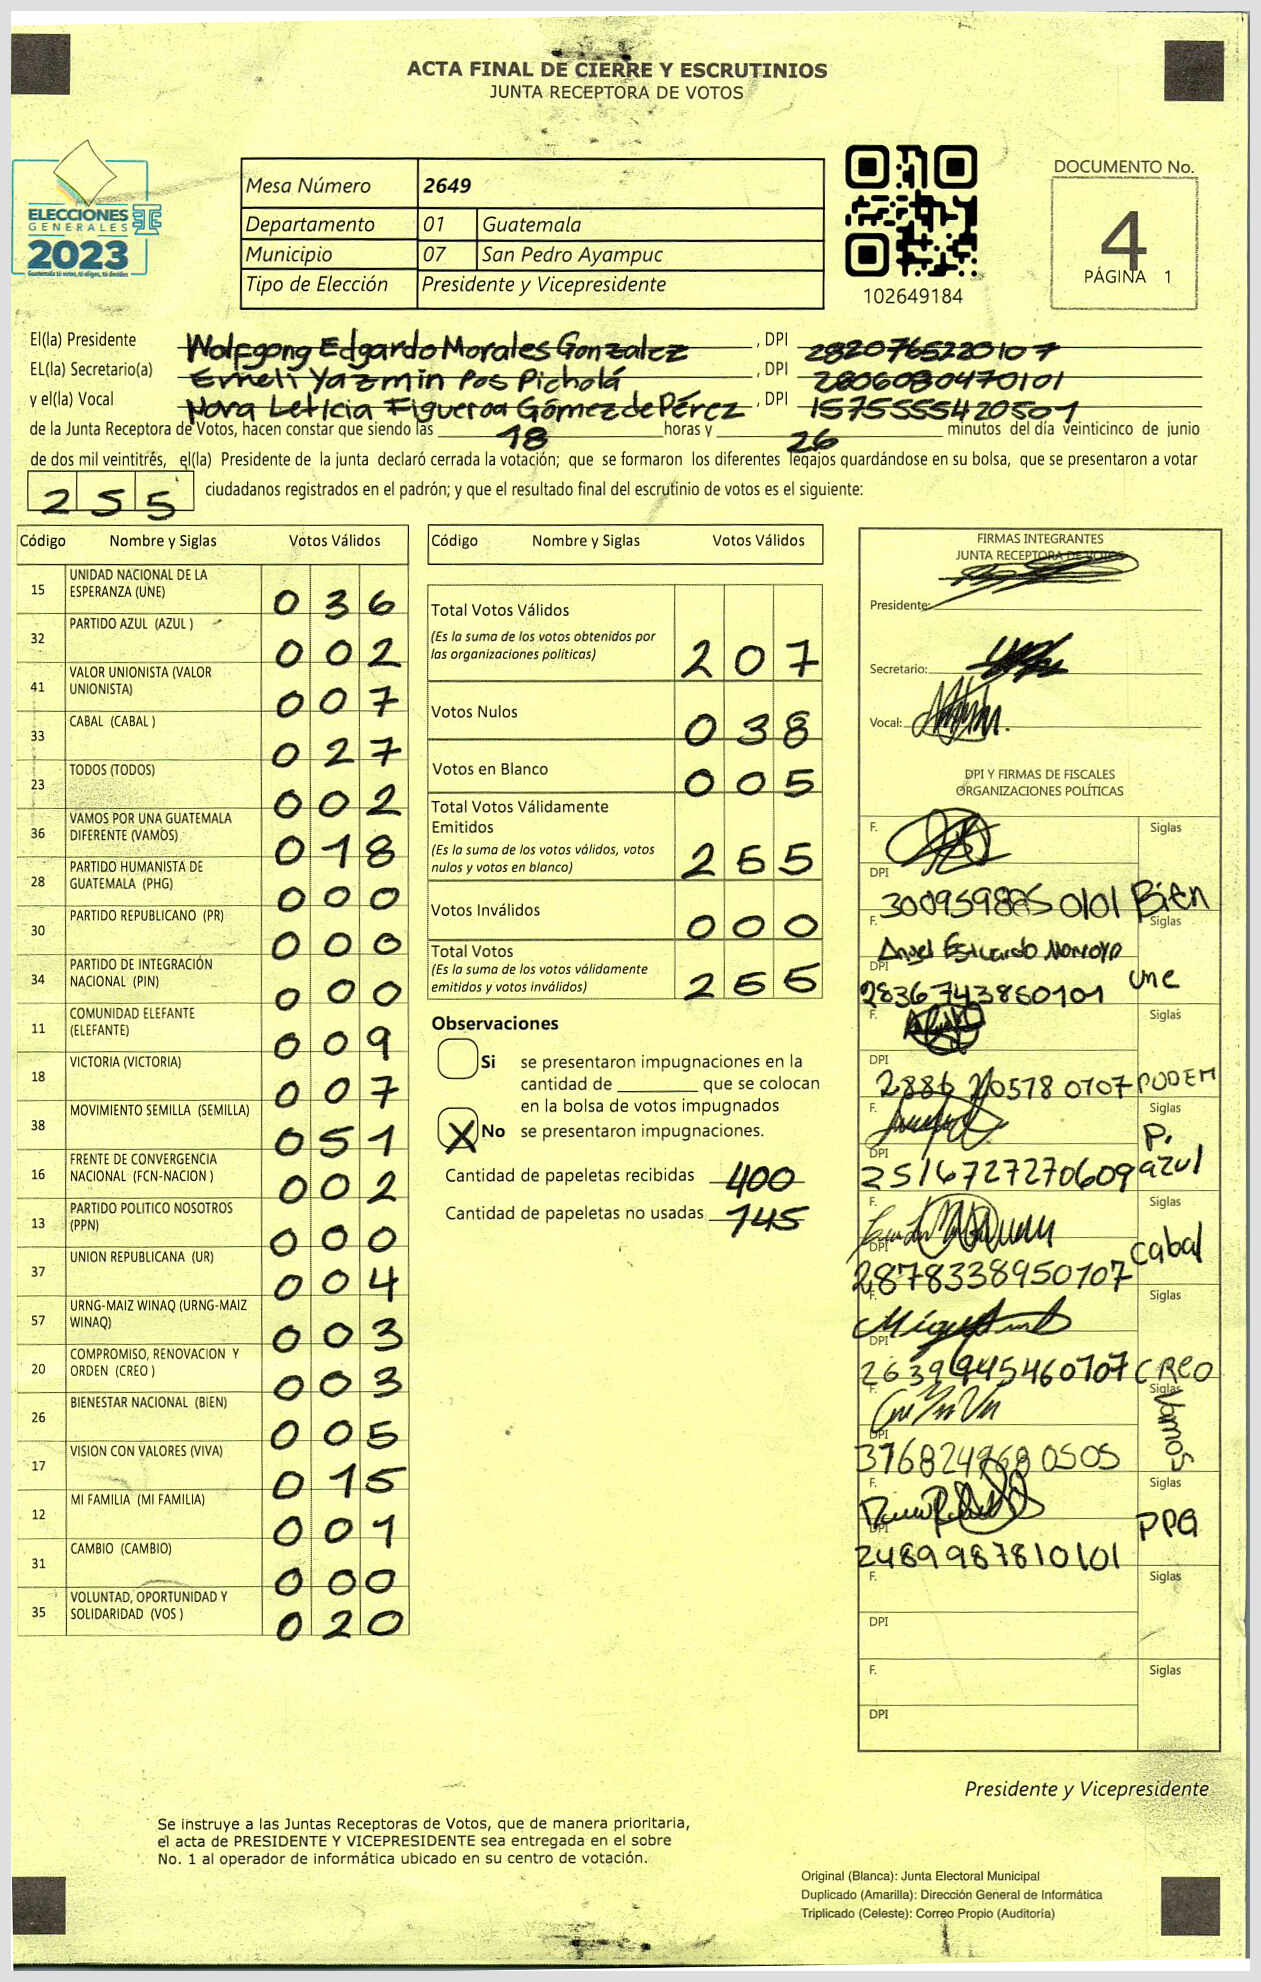 ACTA FINAL DE CIERRE Y ESCRUTINIOS
JUNTA RECEPTORA DE VOTOS
ELECCIONES
GENERALES
2023
Guatemala tú votas, tú eliges, tú decides
Mesa Número 2649
Departamento 01 Guatemala
Municipio 07 San Pedro Ayampuc
Tipo de Elección Presidente y Vicepresidente
102649184
DOCUMENTO No.
4
PÁGINA 1
El(la) Presidente Wolfgong Edgardo Morales Gonzalez, DPI 2820765220107
EL(la) Secretario(a) Emeli Yazmin Pos Picholá, DPI 2806080470101
y el(la) Vocal Nora Leticia Figueroa Gómez de Pérez, DPI 1575555420501
de la Junta Receptora de Votos, hacen constar que siendo las 18 horas y 26 minutos del día veinticinco de junio
de dos mil veintitrés, el(la) Presidente de la junta declaró cerrada la votación; que se formaron los diferentes legajos guardándose en su bolsa, que se presentaron a votar
255 ciudadanos registrados en el padrón; y que el resultado final del escrutinio de votos es el siguiente:
Código Nombre y Siglas Votos Válidos
15 UNIDAD NACIONAL DE LA ESPERANZA (UNE) 036
32 PARTIDO AZUL (AZUL ) 002
41 VALOR UNIONISTA (VALOR UNIONISTA) 007
33 CABAL (CABAL ) 027
23 TODOS (TODOS) 002
36 VAMOS POR UNA GUATEMALA DIFERENTE (VAMOS) 018
28 PARTIDO HUMANISTA DE GUATEMALA (PHG) 000
30 PARTIDO REPUBLICANO (PR) 000
34 PARTIDO DE INTEGRACIÓN NACIONAL (PIN) 000
11 COMUNIDAD ELEFANTE (ELEFANTE) 009
18 VICTORIA (VICTORIA) 007
38 MOVIMIENTO SEMILLA (SEMILLA) 051
16 FRENTE DE CONVERGENCIA NACIONAL (FCN-NACION ) 002
13 PARTIDO POLITICO NOSOTROS (PPN) 000
37 UNION REPUBLICANA (UR) 004
57 URNG-MAIZ WINAQ (URNG-MAIZ WINAQ) 003
20 COMPROMISO, RENOVACION Y ORDEN (CREO ) 003
26 BIENESTAR NACIONAL (BIEN) 005
17 VISION CON VALORES (VIVA) 015
12 MI FAMILIA (MI FAMILIA) 001
31 CAMBIO (CAMBIO) 000
35 VOLUNTAD, OPORTUNIDAD Y SOLIDARIDAD (VOS ) 020
Código Nombre y Siglas Votos Válidos
Total Votos Válidos 207
(Es la suma de los votos obtenidos por
las organizaciones políticas)
Votos Nulos 038
Votos en Blanco 005
Total Votos Válidamente
Emitidos 255
(Es la suma de los votos válidos, votos
nulos y votos en blanco)
Votos Inválidos 000
Total Votos 255
(Es la suma de los votos válidamente
emitidos y votos inválidos)
Observaciones
Si se presentaron impugnaciones en la
cantidad de ________ que se colocan
en la bolsa de votos impugnados
X No se presentaron impugnaciones.
Cantidad de papeletas recibidas 400
Cantidad de papeletas no usadas 145
FIRMAS INTEGRANTES
JUNTA RECEPTORA DE VOTOS
Presidente:
Secretario:
Vocal:
DPI Y FIRMAS DE FISCALES
ORGANIZACIONES POLÍTICAS
F. Siglas
DPI
3009598850101 Bien
F. Siglas
Angel Estuardo
DPI
2836743850101 une
F. Siglas
DPI
2886 20578 0107 PODEM
F. Siglas
DPI
2516727270609 P. azul
F. Siglas
DPI
2878338950107 cabal
F. Siglas
DPI
2639945460707 CREO
F. Siglas
DPI
0505 Vamos
F. Siglas
DPI
2489987810101 PPG
F. Siglas
DPI
F. Siglas
DPI
Presidente y Vicepresidente
Se instruye a las Juntas Receptoras de Votos, que de manera prioritaria,
el acta de PRESIDENTE Y VICEPRESIDENTE sea entregada en el sobre
No. 1 al operador de informática ubicado en su centro de votación.
Original (Blanca): Junta Electoral Municipal
Duplicado (Amarilla): Dirección General de Informática
Triplicado (Celeste): Correo Propio (Auditoría)